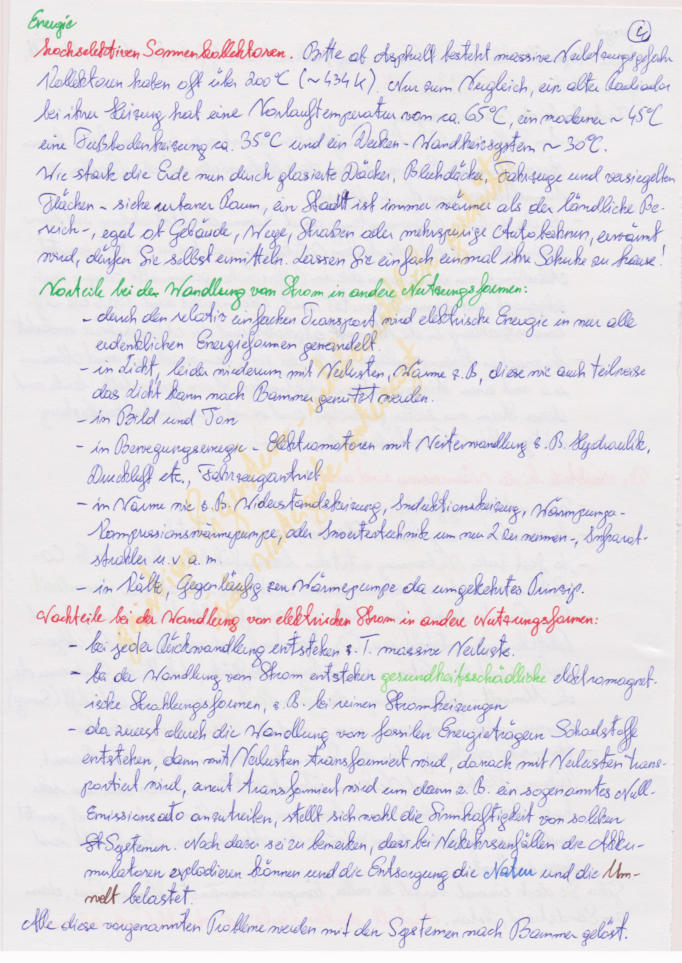 Energie
4
hochselektiven Sonnenkollektoren. Bitte ob Asphalt besteht massive Verletzungsgefahr
Kollektoren haben oft über 200°C (~434k). Nur zum Vergleich, ein alter Radiator
bei ihrer Heizung hat eine Vorlauftemperatur von ca. 65°C, ein moderner ~45°C
eine Fußbodenheizung ca. 35°C und ein Decken-Wandheizsystem ~30°C.
Wie stark die Erde nun durch glasierte Dächer, Blechdächer, Fahrzeuge und versiegelten
Flächen - siehe urbaner Raum, ein Stadt ist immer wärmer als der ländliche Be-
reich-, egal ob Gebäude, Wege, Straßen oder mehrspurige Autobahnen, erwärmt
wird, dürfen Sie selbst ermitteln. Lassen Sie einfach einmal ihre Schuhe zu hause!
Vorteile bei der Wandlung vom Strom in andere Nutzungsformen:
- durch den relativ einfachen Transport wird elektrische Energie in nur alle
erdenklichen Energieformen gewandelt.
- in Licht, leider wiederum mit Verlusten, Wärme z.B, diese wie auch teilweise
das Licht kann nach Bammer genutzt werden.
- in Bild und Ton
- in Bewegungsenergie - Elektromotoren mit Weiterwandlung z.B. Hydraulik,
Druckluft etc., Fahrzeugantrieb
- in Wärme wie z.B. Widerstandsheizung, Induktionsheizung, Wärmpumpe-
Kompressionswärmepumpe, oder Invertertechnik um nur 2 zu nennen-, Infrarot-
strahler u.v.a.m.
- in Kälte, Gegenläufig zur Wärmepumpe da umgekehrtes Prinzip.
Nachteile bei der Wandlung von elektrischen Strom in andere Nutzungsformen:
- bei jeder Rückwandlung entstehen z.T. massive Verluste.
- bei der Wandlung vom Strom entstehen gesundheitsschädliche elektromagnet-
ische Strahlungsformen, z.B. bei reinen Stromheizungen
- da zuerst durch die Wandlung vom fossilen Energieträgern Schadstoffe
entstehen, dann mit Verlusten transformiert wird, danach mit Verlusten trans-
portiert wird, erneut transformiert wird um dann z.B. ein sogenanntes Null-
Emissionsauto anzutreiben, stellt sich wohl die Sinnhaftigkeit von solchen
Systemen. Noch dazu sei zu bemerken, dass bei Verkehrsunfällen die Akku-
mulatoren explodieren können und die Entsorgung die Natur und die Um-
welt belastet.
Alle diese vorgenannten Probleme werden mit den Systemen nach Bammer gelöst.